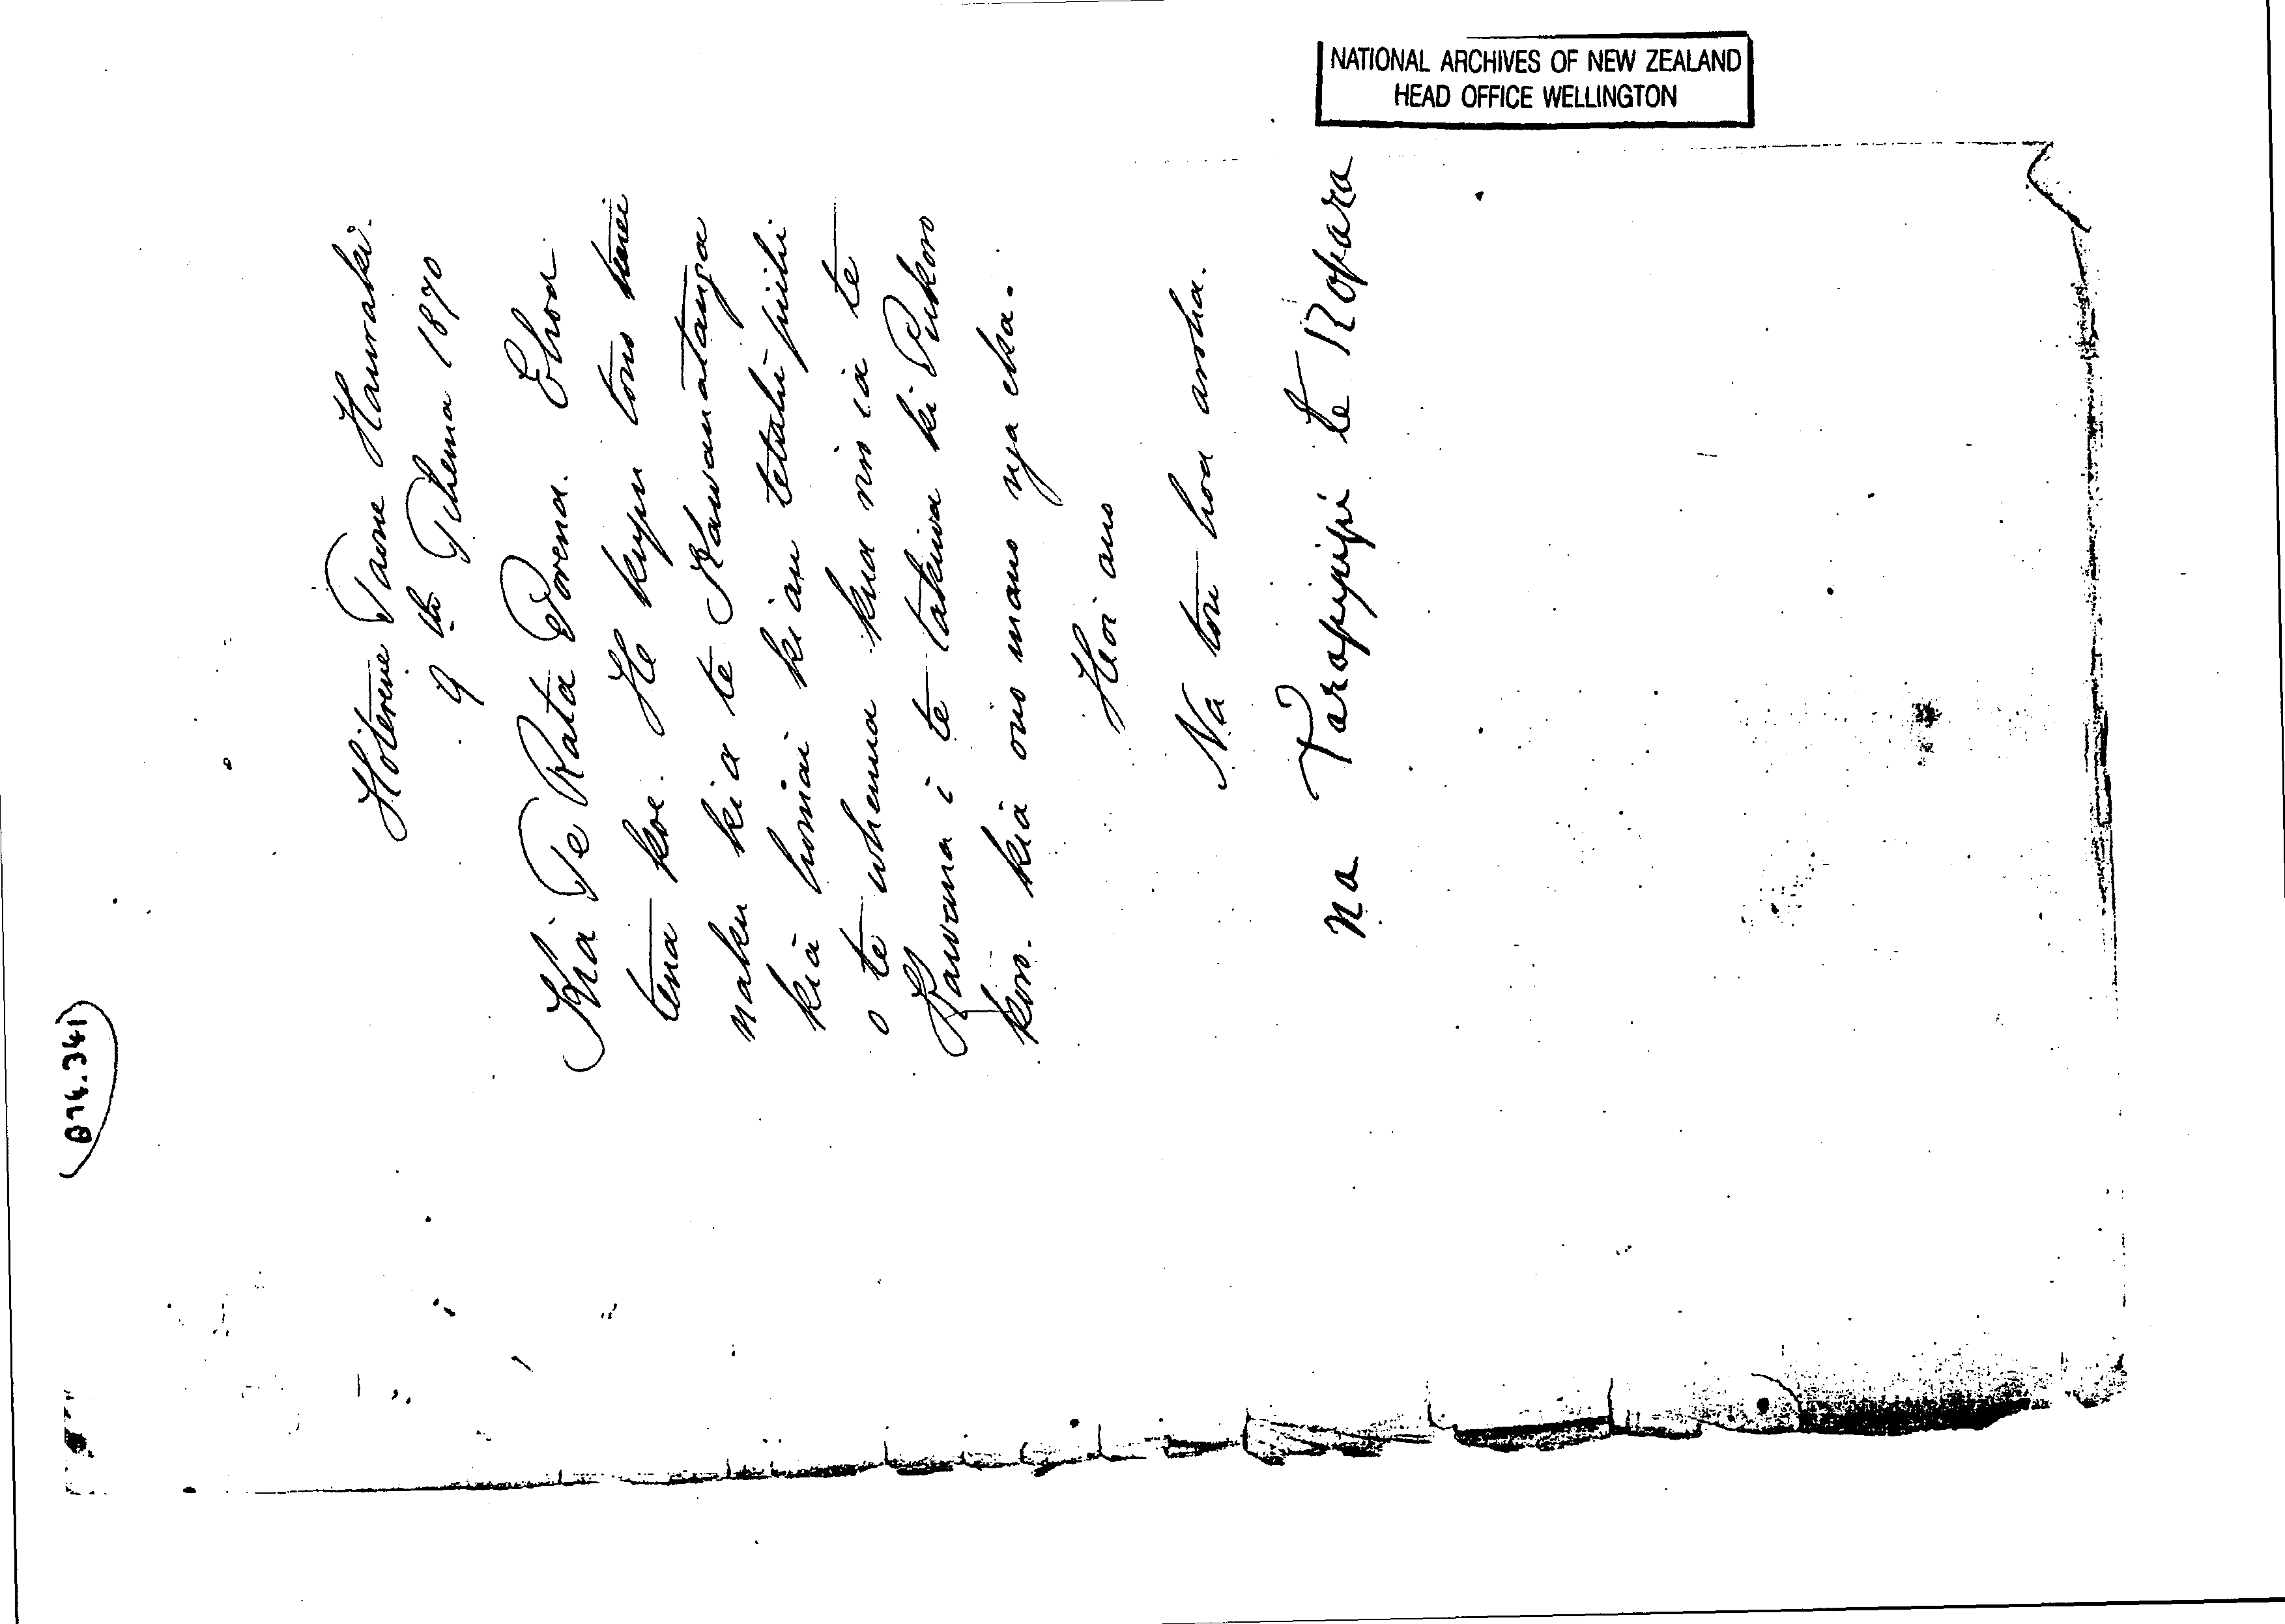 NATIONAL ARCHIVES OF NEW ZEALAND
HEAD OFFICE WELLINGTON
(874.341)
Hotereni Taone Hauraki.
9 Tihema 1870
Kia Te Rata Porena. Ehoa
tena koe. He kupu tono tenei
naku kia te Kawanatanga
kia homai kiau tetahi pihi
o te whenua kua riro ia te
Kawana i te takiwa ki Pukoro
koro. kia oiro mano nga eka.
Heoi ano
Na tou hoa aroha.
na Taropipipi te Kopara